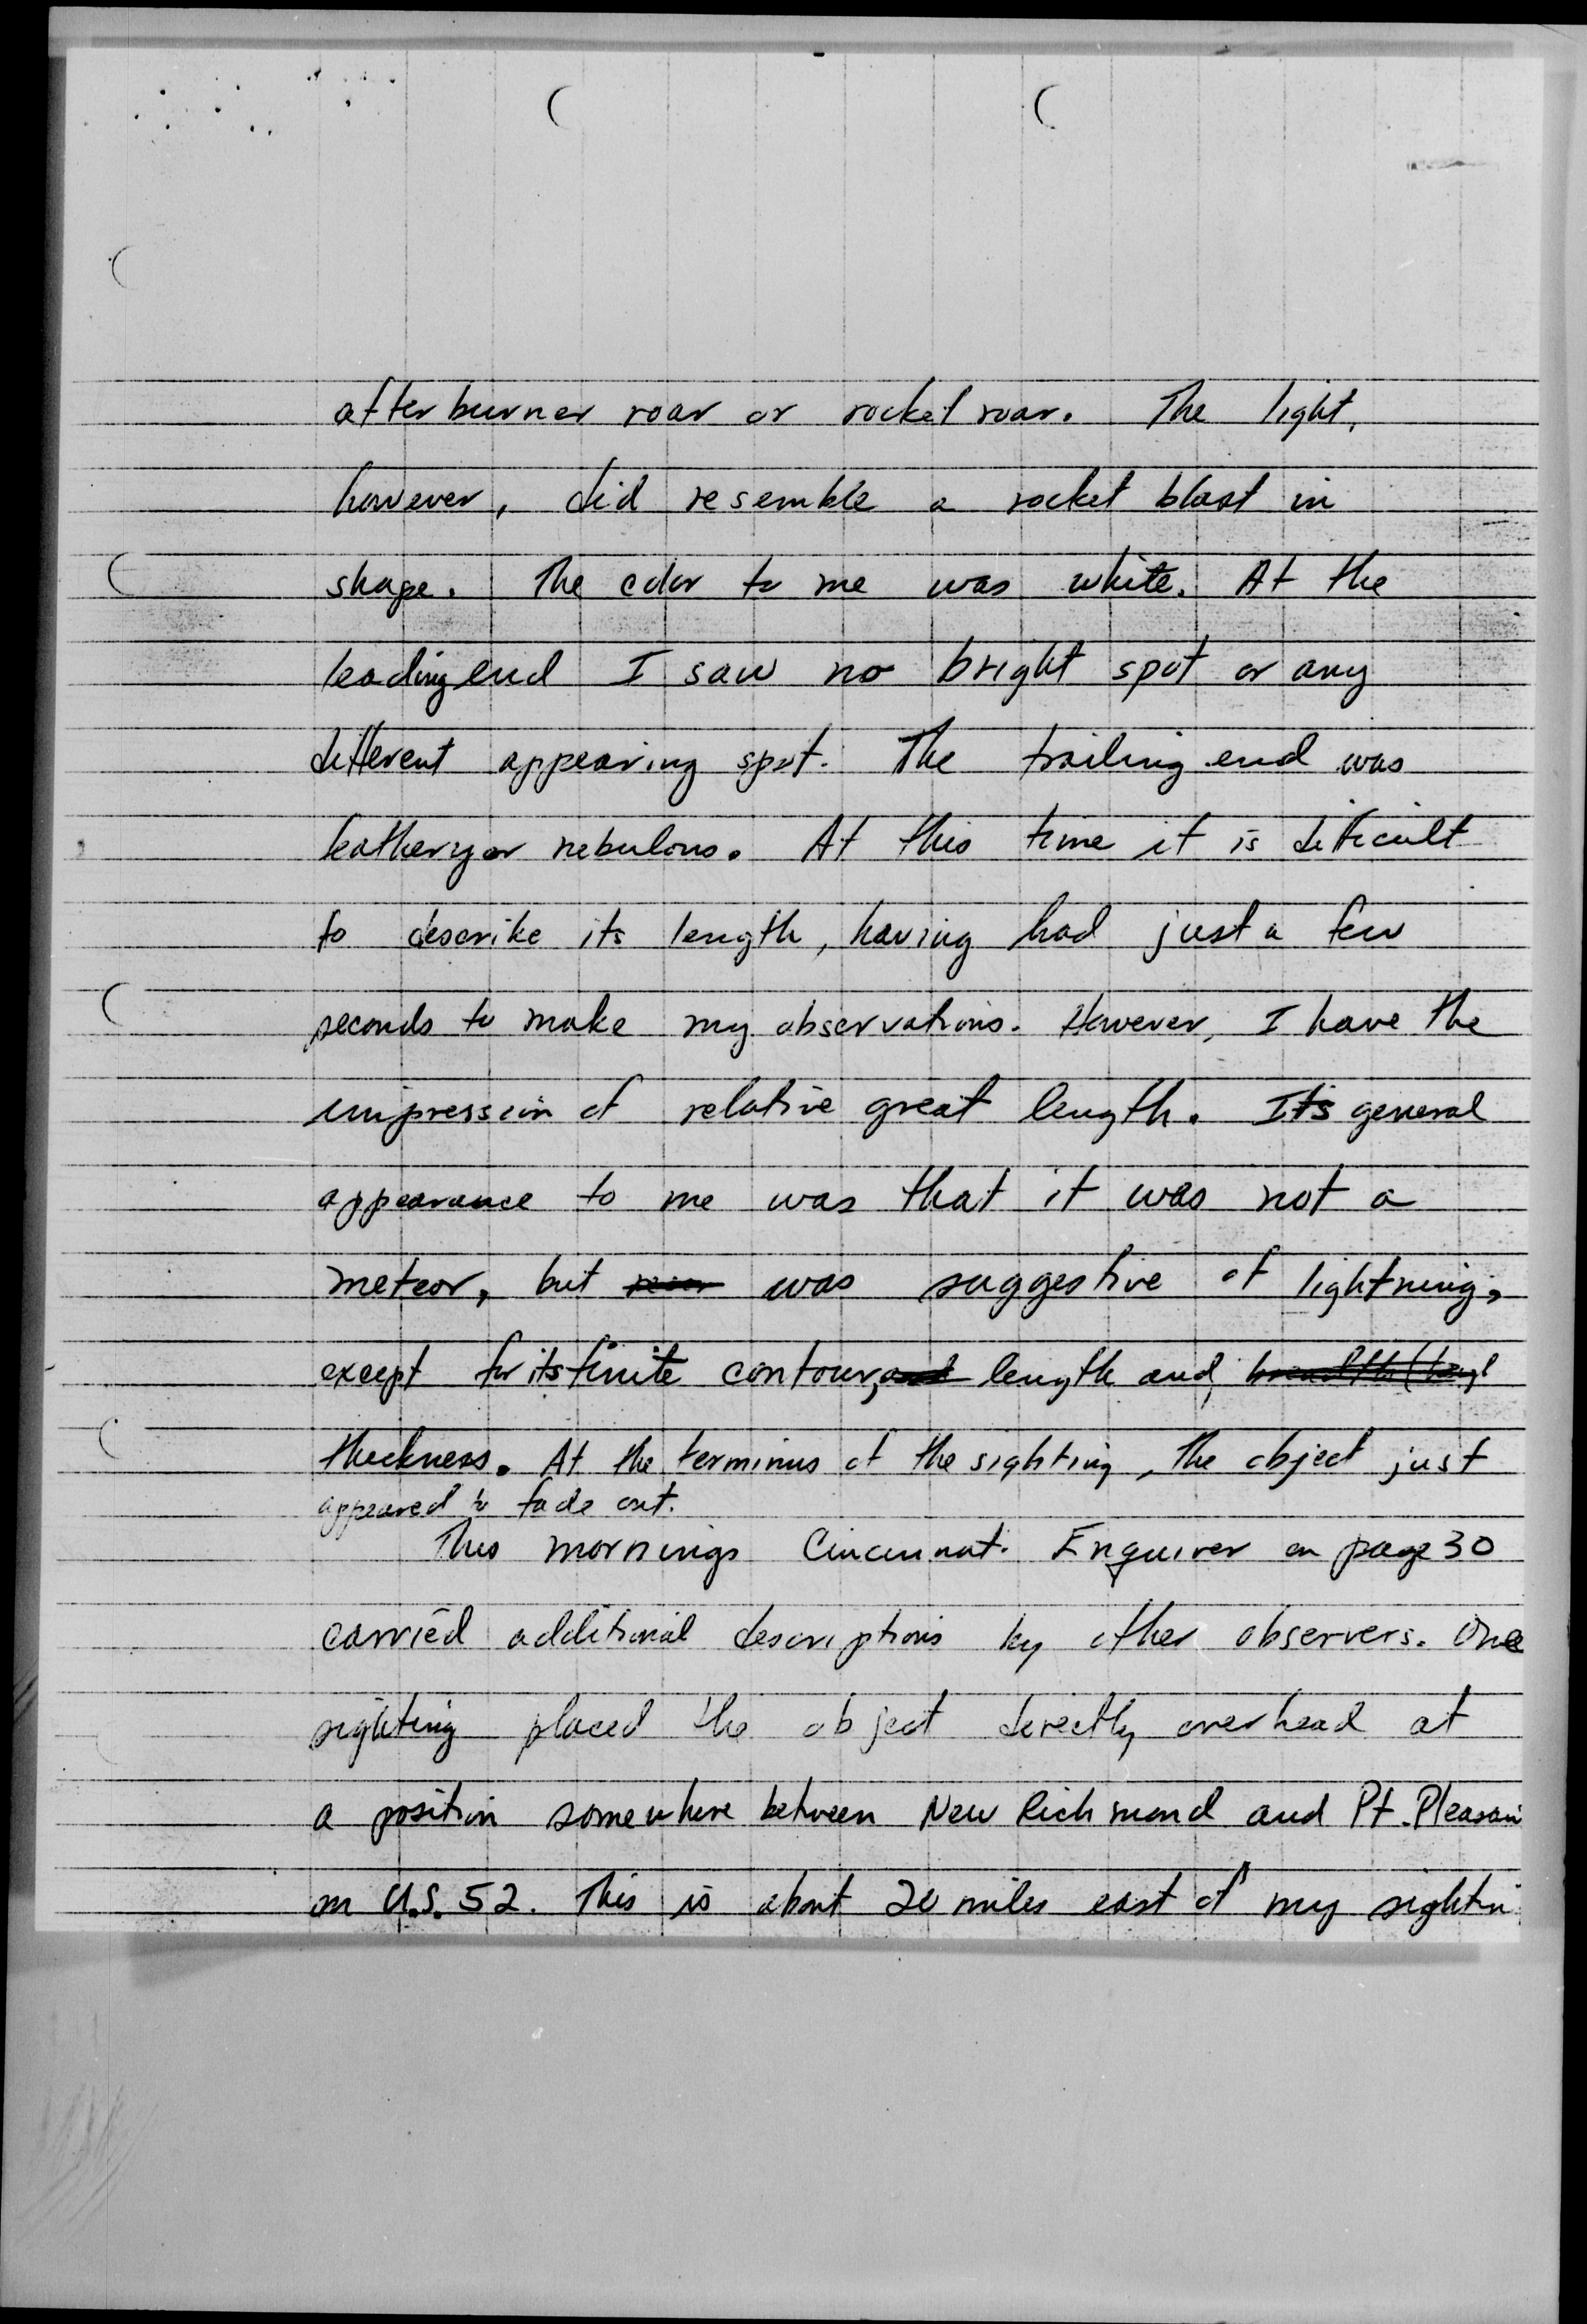 afterburner roar or rocket roar. The light,
however, did resemble a rocket blast in
shape. The color to me was white. At the
leading end I saw no bright spot or any
different appearing spot. The trailing end was
feathery or nebulous. At this time it is dificult
to describe its length, having had just a few
seconds to make my observations. However, I have the
impression of relative great length. Its general
appearance to me was that it was not a
meteor, but was suggestive of lightning,
except for its finite contour, and length and
thickness. At the terminus of the sighting, the object just
appeared to fade out.
This mornings Cincinnati Enquirer on page 30
carried additional descriptions by other observers. One
sighting placed the object directly overhead at
a position somewhere between New Richmond and Pt. Pleasan
on U.S. 52. This is about 20 miles east of my sightin